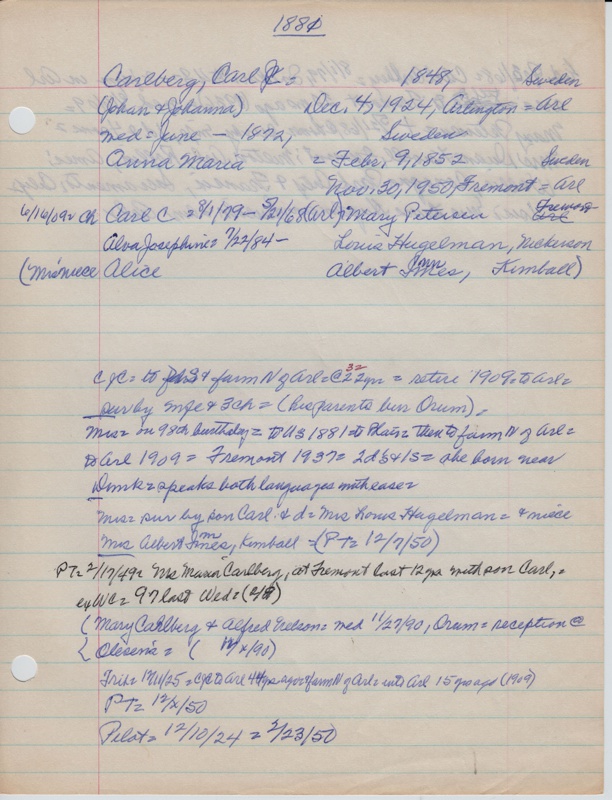 1880
Carlberg, Carl J. = 1848, Sweden
(Johan & Johanna) Dec. 4, 1924, Arlington = Arl
med = June - 1872, Sweden
Anna Maria = Febr. 9, 1852 Sweden
Nov. 30, 1950, Fremont = Arl
6/16/09 = Ch Carl C = 8/1/79 - 5/21/68 (Arl) = Mary Petersen Fremont
Alva Josephine = 7/22/84 - Louis Hugelman, Nickerson
(Mrs niece Alice Albert Kimball)
CJC = to & farm N of Arl = @ 32 yrs = retire 1909 = to Arl =
sur by & 3 ch = (his parents bur Orum) =
Mrs = on 98th birthday = to US 1881 = to = then to farm N of Arl =
to Arl 1909 = Fremont 1937 = 2d's & 1S = she born near
Dmrk = speaks both languages with ease =
Mrs = sur by son Carl & d = Mrs Louis Hugelman = & niece
Mrs Albert Kimball = (PT = 12/7/50)
PT = 2/17/49 = Mrs Maria Carlberg, at Fremont last 12 yrs with son Carl, =
97 last Wed = (2/9)
(Mary Carlberg & Alfred Nelson = med 11/27/90, Orum = reception @
Olesen's = ( /x/90)
Trib = 12/11/25 = CJC to Arl 44 yrs ago = farm N of Arl = into Arl 15 yrs ago (1909)
PT = 12/x/50
Pilot = 12/10/24 = 2/23/50